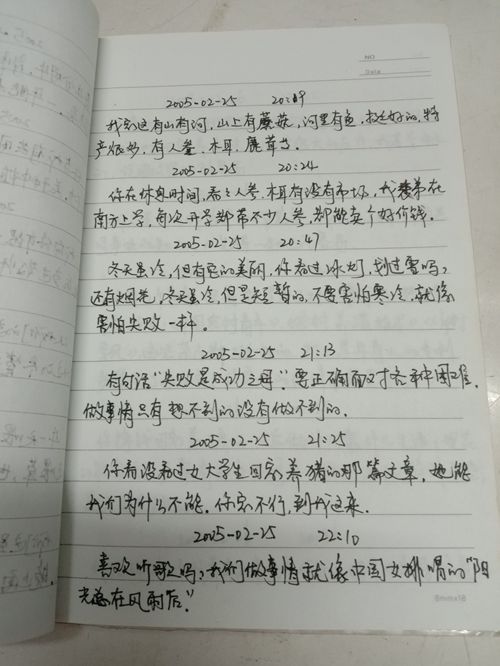 NO
Date
2005-02-25 20:19
我家这有山有河,山上有蘑菇,河里有鱼,挺好的,特
产很多,有人参、木耳、鹿茸等。
2005-02-25 20:24
你在休息时间,看看人参、木耳有没有市场,我表弟在
南方上学,每次开学都带不少人参,都能卖个好价钱。
2005-02-25 20:47
冬天虽冷,但有它的美丽,你看过冰灯,划过雪吗?
还有烟花,冬天虽冷,但是短暂的,不要害怕寒冷,就像
害怕失败一样。
2005-02-25 21:13
有句话“失败是成功之母”。要正确面对各种困难,
做事情只有想不到的没有做不到的。
2005-02-25 21:25
你看没看过女大学生回家养猪的那篇文章,她能
我们为什么不能。你家不行,到我这来。
2005-02-25 22:10
喜欢听歌吗?我们做事情就像中国女排唱的“阳
光总在风雨后”